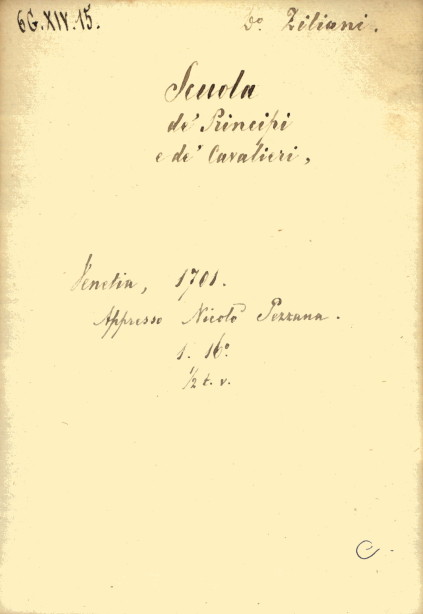 6G.XIV.15.
Do. Ziliani.
Scuola
de' Principi
e de' Cavalieri,
Venetia, 1701.
Appresso Nicolò Pezzana.
1. 16º
½ t. v.
C